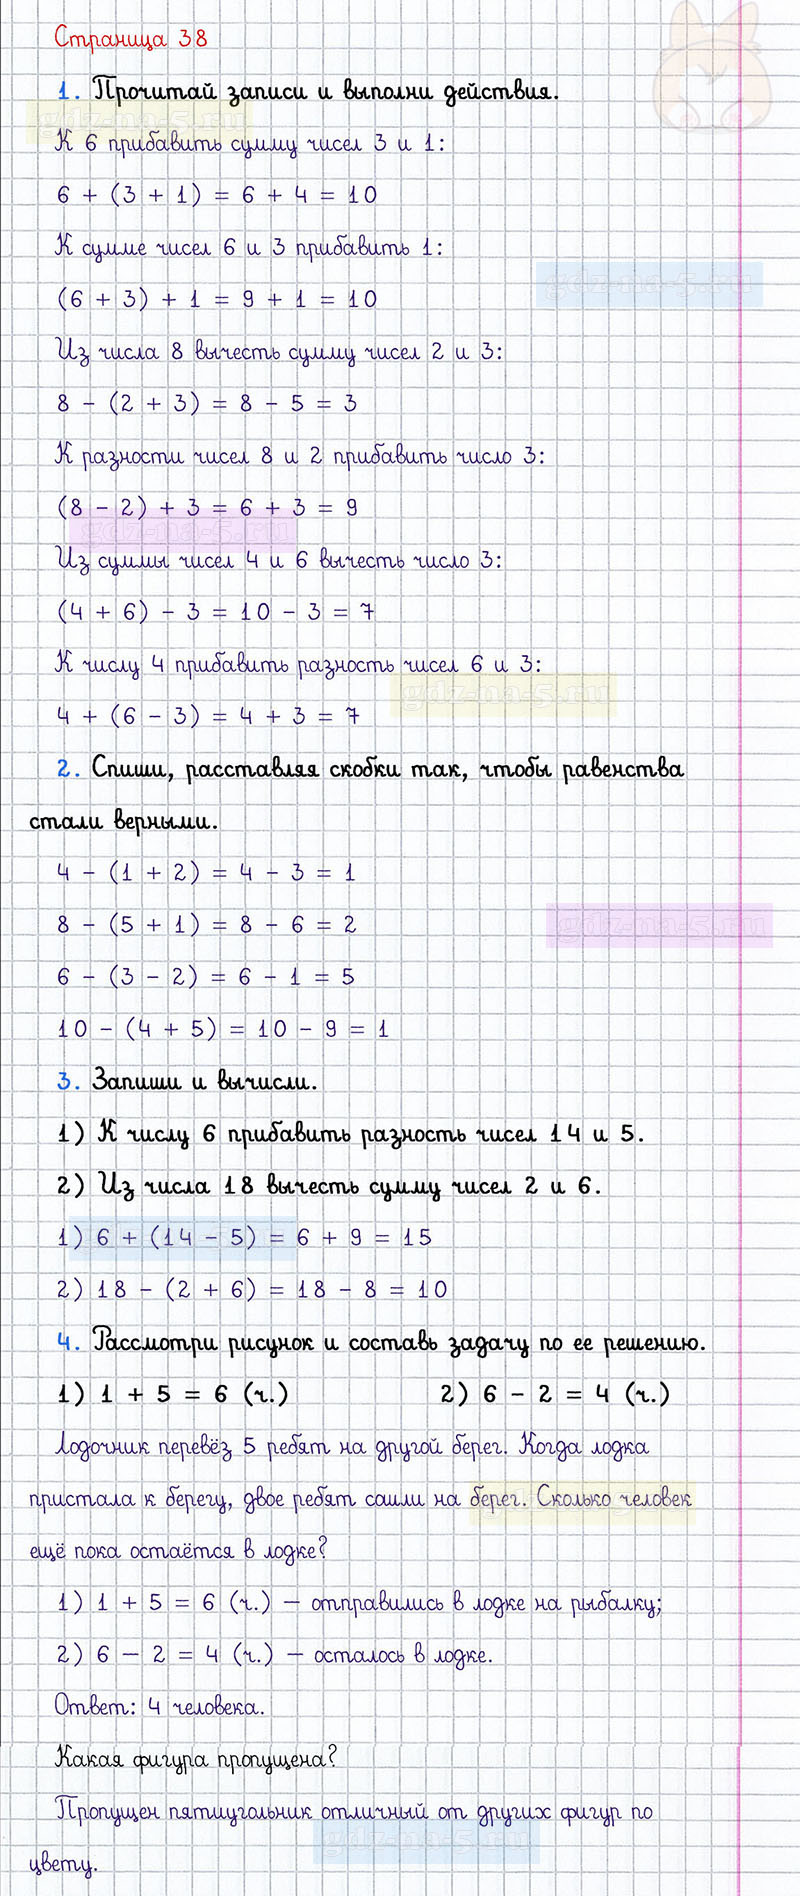 Страница 38
1. Прочитай записи и выполни действия.
gdz-na-5.ru
К 6 прибавить сумму чисел 3 и 1:
6 + (3 + 1) = 6 + 4 = 10
К сумме чисел 6 и 3 прибавить 1:
gdz-na-5.ru
(6 + 3) + 1 = 9 + 1 = 10
Из числа 8 вычесть сумму чисел 2 и 3:
8 - (2 + 3) = 8 - 5 = 3
К разности чисел 8 и 2 прибавить число 3:
(8 - 2) + 3 = 6 + 3 = 9
gdz-na-5.ru
Из суммы чисел 4 и 6 вычесть число 3:
(4 + 6) - 3 = 10 - 3 = 7
К числу 4 прибавить разность чисел 6 и 3:
gdz-na-5.ru
4 + (6 - 3) = 4 + 3 = 7
2. Спиши, расставляя скобки так, чтобы равенства
стали верными.
4 - (1 + 2) = 4 - 3 = 1
8 - (5 + 1) = 8 - 6 = 2
gdz-na-5.ru
6 - (3 - 2) = 6 - 1 = 5
10 - (4 + 5) = 10 - 9 = 1
3. Запиши и вычисли.
1) К числу 6 прибавить разность чисел 14 и 5.
2) Из числа 18 вычесть сумму чисел 2 и 6.
1) 6 + (14 - 5) = 6 + 9 = 15
2) 18 - (2 + 6) = 18 - 8 = 10
4. Рассмотри рисунок и составь задачу по ее решению.
1) 1 + 5 = 6 (ч.) 2) 6 - 2 = 4 (ч.)
Лодочник перевёз 5 ребят на другой берег. Когда лодка
пристала к берегу, двое ребят сошли на берег. Сколько человек
ещё пока остаётся в лодке?
1) 1 + 5 = 6 (ч.) – отправились в лодке на рыбалку;
2) 6 – 2 = 4 (ч.) – осталось в лодке.
Ответ: 4 человека.
Какая фигура пропущена?
Пропущен пятиугольник отличный от других фигур по
gdz-na-5.ru
цвету.